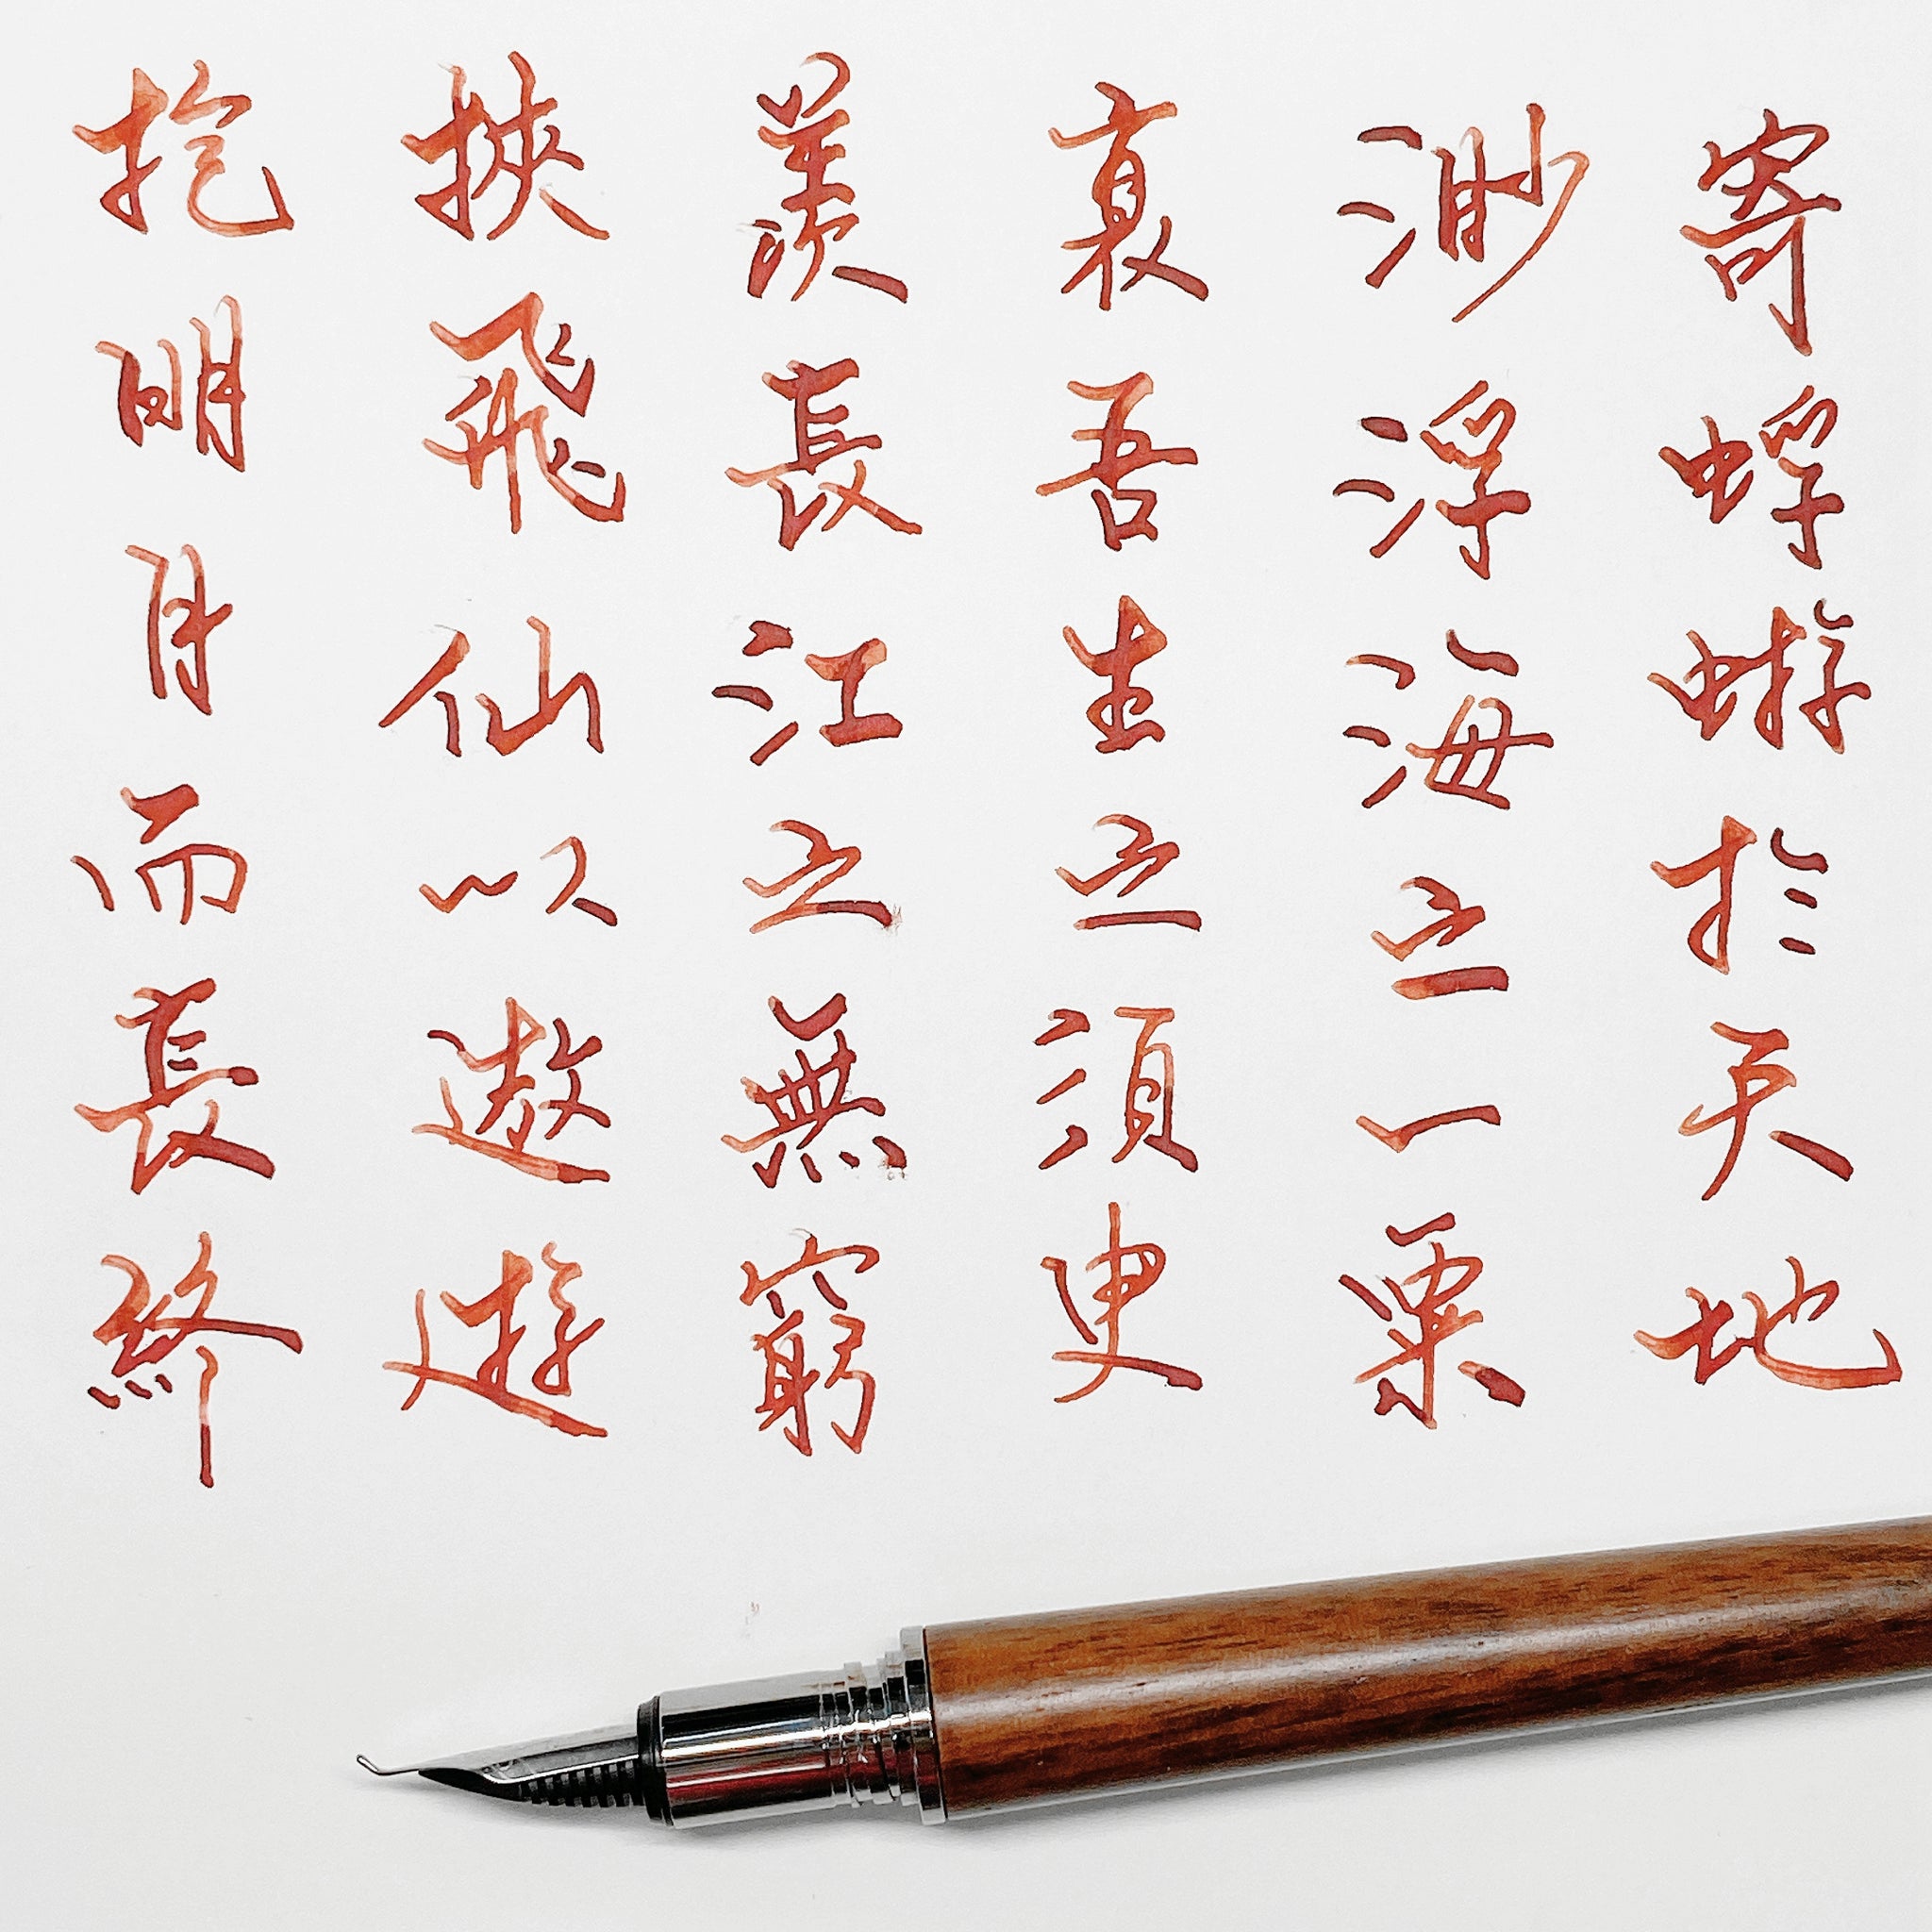 寄蜉蝣於天地
渺浮海之一粟
哀吾生之須臾
羨長江之無窮
挾飛仙以遨遊
抱明月而長終